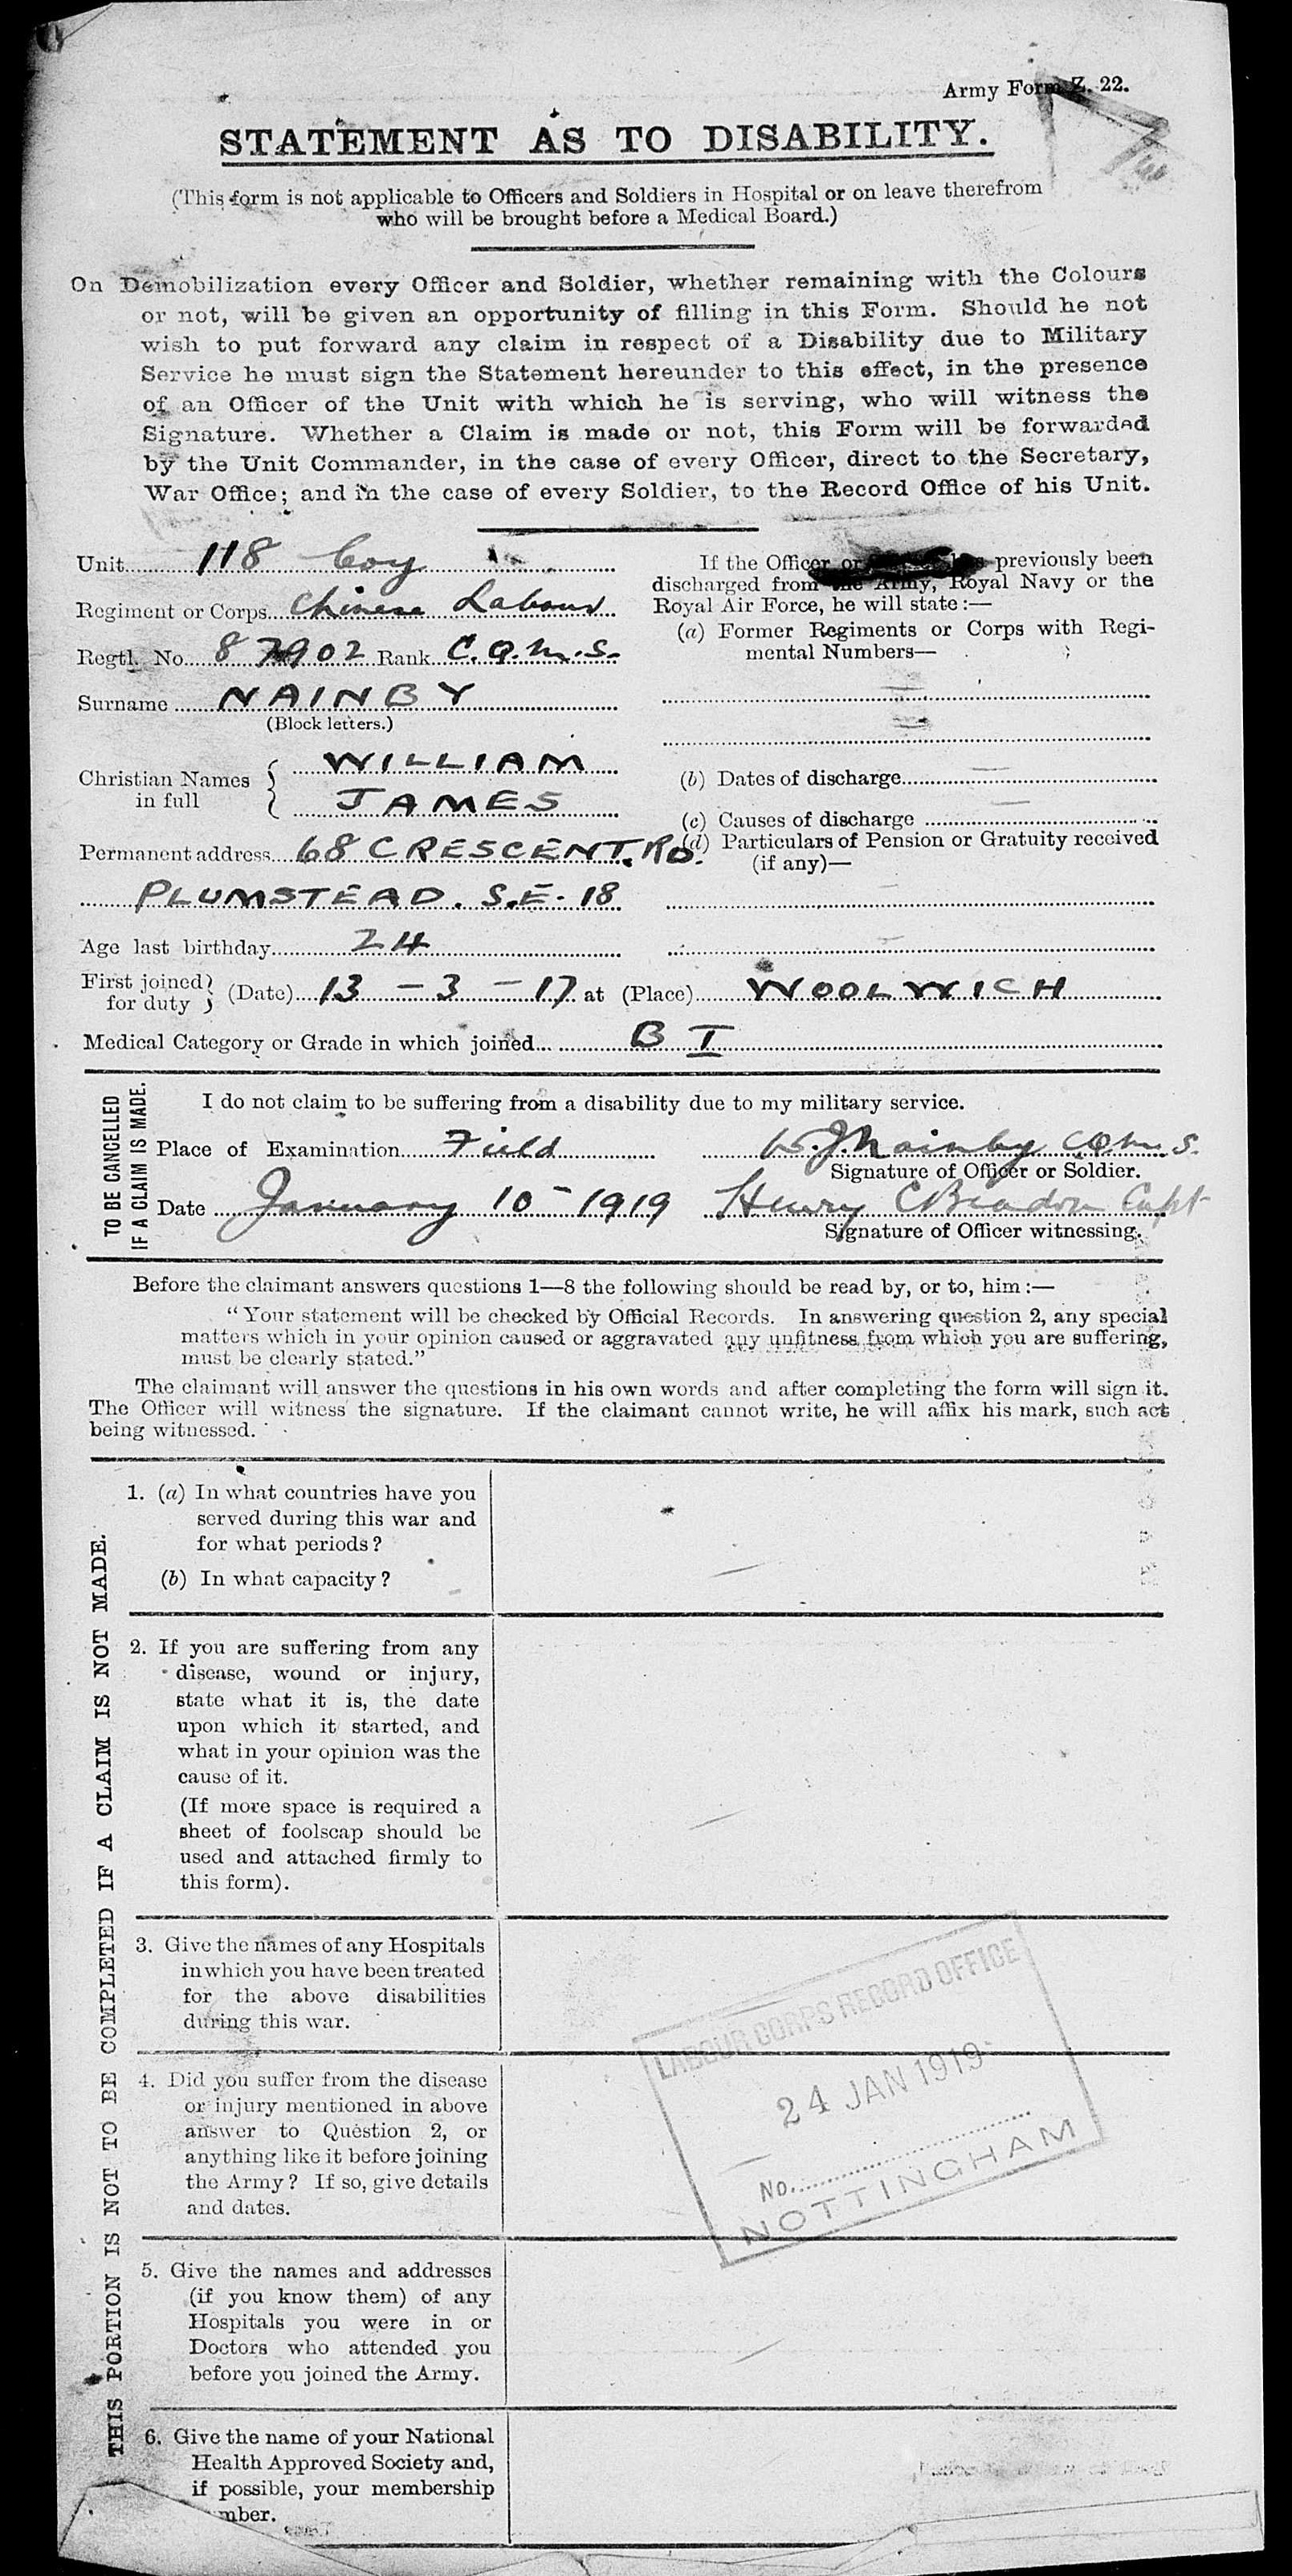 Army Form Z. 22.
STATEMENT AS TO DISABILITY.
(This form is not applicable to Officers and Soldiers in Hospital or on leave therefrom
who will be brought before a Medical Board.)
On Demobilization every Officer and Soldier, whether remaining with the Colours
or not, will be given an opportunity of filling in this Form. Should he not
wish to put forward any claim in respect of a Disability due to Military
Service he must sign the Statement hereunder to this effect, in the presence
of an Officer of the Unit with which he is serving, who will witness the
Signature. Whether a Claim is made or not, this Form will be forwarded
by the Unit Commander, in the case of every Officer, direct to the Secretary,
War Office; and in the case of every Soldier, to the Record Office of his Unit.
Unit 118 Coy
Regiment or Corps Chinese Labour
Regtl. No. 87902 Rank C.Q.M.S.
Surname NAINBY
(Block letters.)
Christian Names in full WILLIAM
JAMES
Permanent address 68 CRESCENT. RD.
PLUMSTEAD. S.E. 18
Age last birthday 24
If the Officer or previously been
discharged from the Army, Royal Navy or the
Royal Air Force, he will state:—
(a) Former Regiments or Corps with Regi-
mental Numbers—
(b) Dates of discharge
(c) Causes of discharge
(d) Particulars of Pension or Gratuity received
(if any)—
First joined for duty (Date) 13 – 3 – 17 at (Place) WOOLWICH
Medical Category or Grade in which joined B I
TO BE CANCELLED
IF A CLAIM IS MADE.
I do not claim to be suffering from a disability due to my military service.
Place of Examination Field W.J. Nainby CQMS.
Signature of Officer or Soldier.
Date January 10 – 1919 Henry C Capt
Signature of Officer witnessing.
Before the claimant answers questions 1—8 the following should be read by, or to, him:—
"Your statement will be checked by Official Records. In answering question 2, any special
matters which in your opinion caused or aggravated any unfitness from which you are suffering,
must be clearly stated."
The claimant will answer the questions in his own words and after completing the form will sign it.
The Officer will witness the signature. If the claimant cannot write, he will affix his mark, such act
being witnessed.
THIS PORTION IS NOT TO BE COMPLETED IF A CLAIM IS NOT MADE.
1. (a) In what countries have you
served during this war and
for what periods?
(b) In what capacity?
2. If you are suffering from any
disease, wound or injury,
state what it is, the date
upon which it started, and
what in your opinion was the
cause of it.
(If more space is required a
sheet of foolscap should be
used and attached firmly to
this form).
3. Give the names of any Hospitals
in which you have been treated
for the above disabilities
during this war.
4. Did you suffer from the disease
or injury mentioned in above
answer to Question 2, or
anything like it before joining
the Army? If so, give details
and dates.
LABOUR CORPS RECORD OFFICE
24 JAN 1919
No.
NOTTINGHAM
5. Give the names and addresses
(if you know them) of any
Hospitals you were in or
Doctors who attended you
before you joined the Army.
6. Give the name of your National
Health Approved Society and,
if possible, your membership
mber.